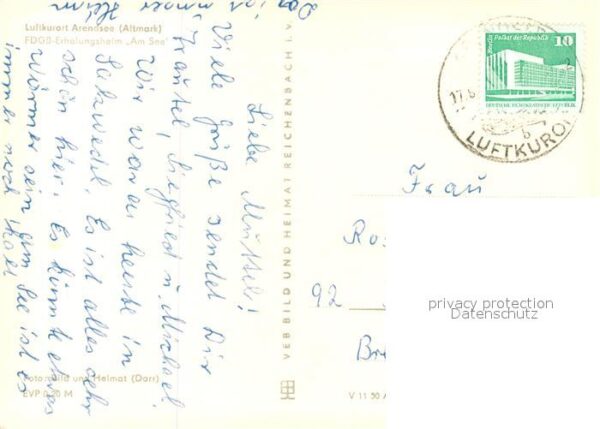 Das ist unser Heim
Luftkurort Arendsee (Altmark)
FDGB-Erholungsheim „Am See"
Liebe Muttel!
Viele Grüße sendet Dir
Traute, Siegfried u. Michael
Wir waren heute in
Salzwedel. Es ist alles sehr
schön hier. Es könnte etwas
wärmer sein, am See ist es
immer noch kalt
Foto: Bild und Heimat (Darr)
EVP 0,20 M
VEB BILD UND HEIMAT REICHENBACH I. V.
V 11 50 A
Palast der Republik
10
DEUTSCHE DEMOKRATISCHE REPUBLIK
17.6
b
LUFTKUROR
Frau
Ros
92
Br
privacy protection
Datenschutz